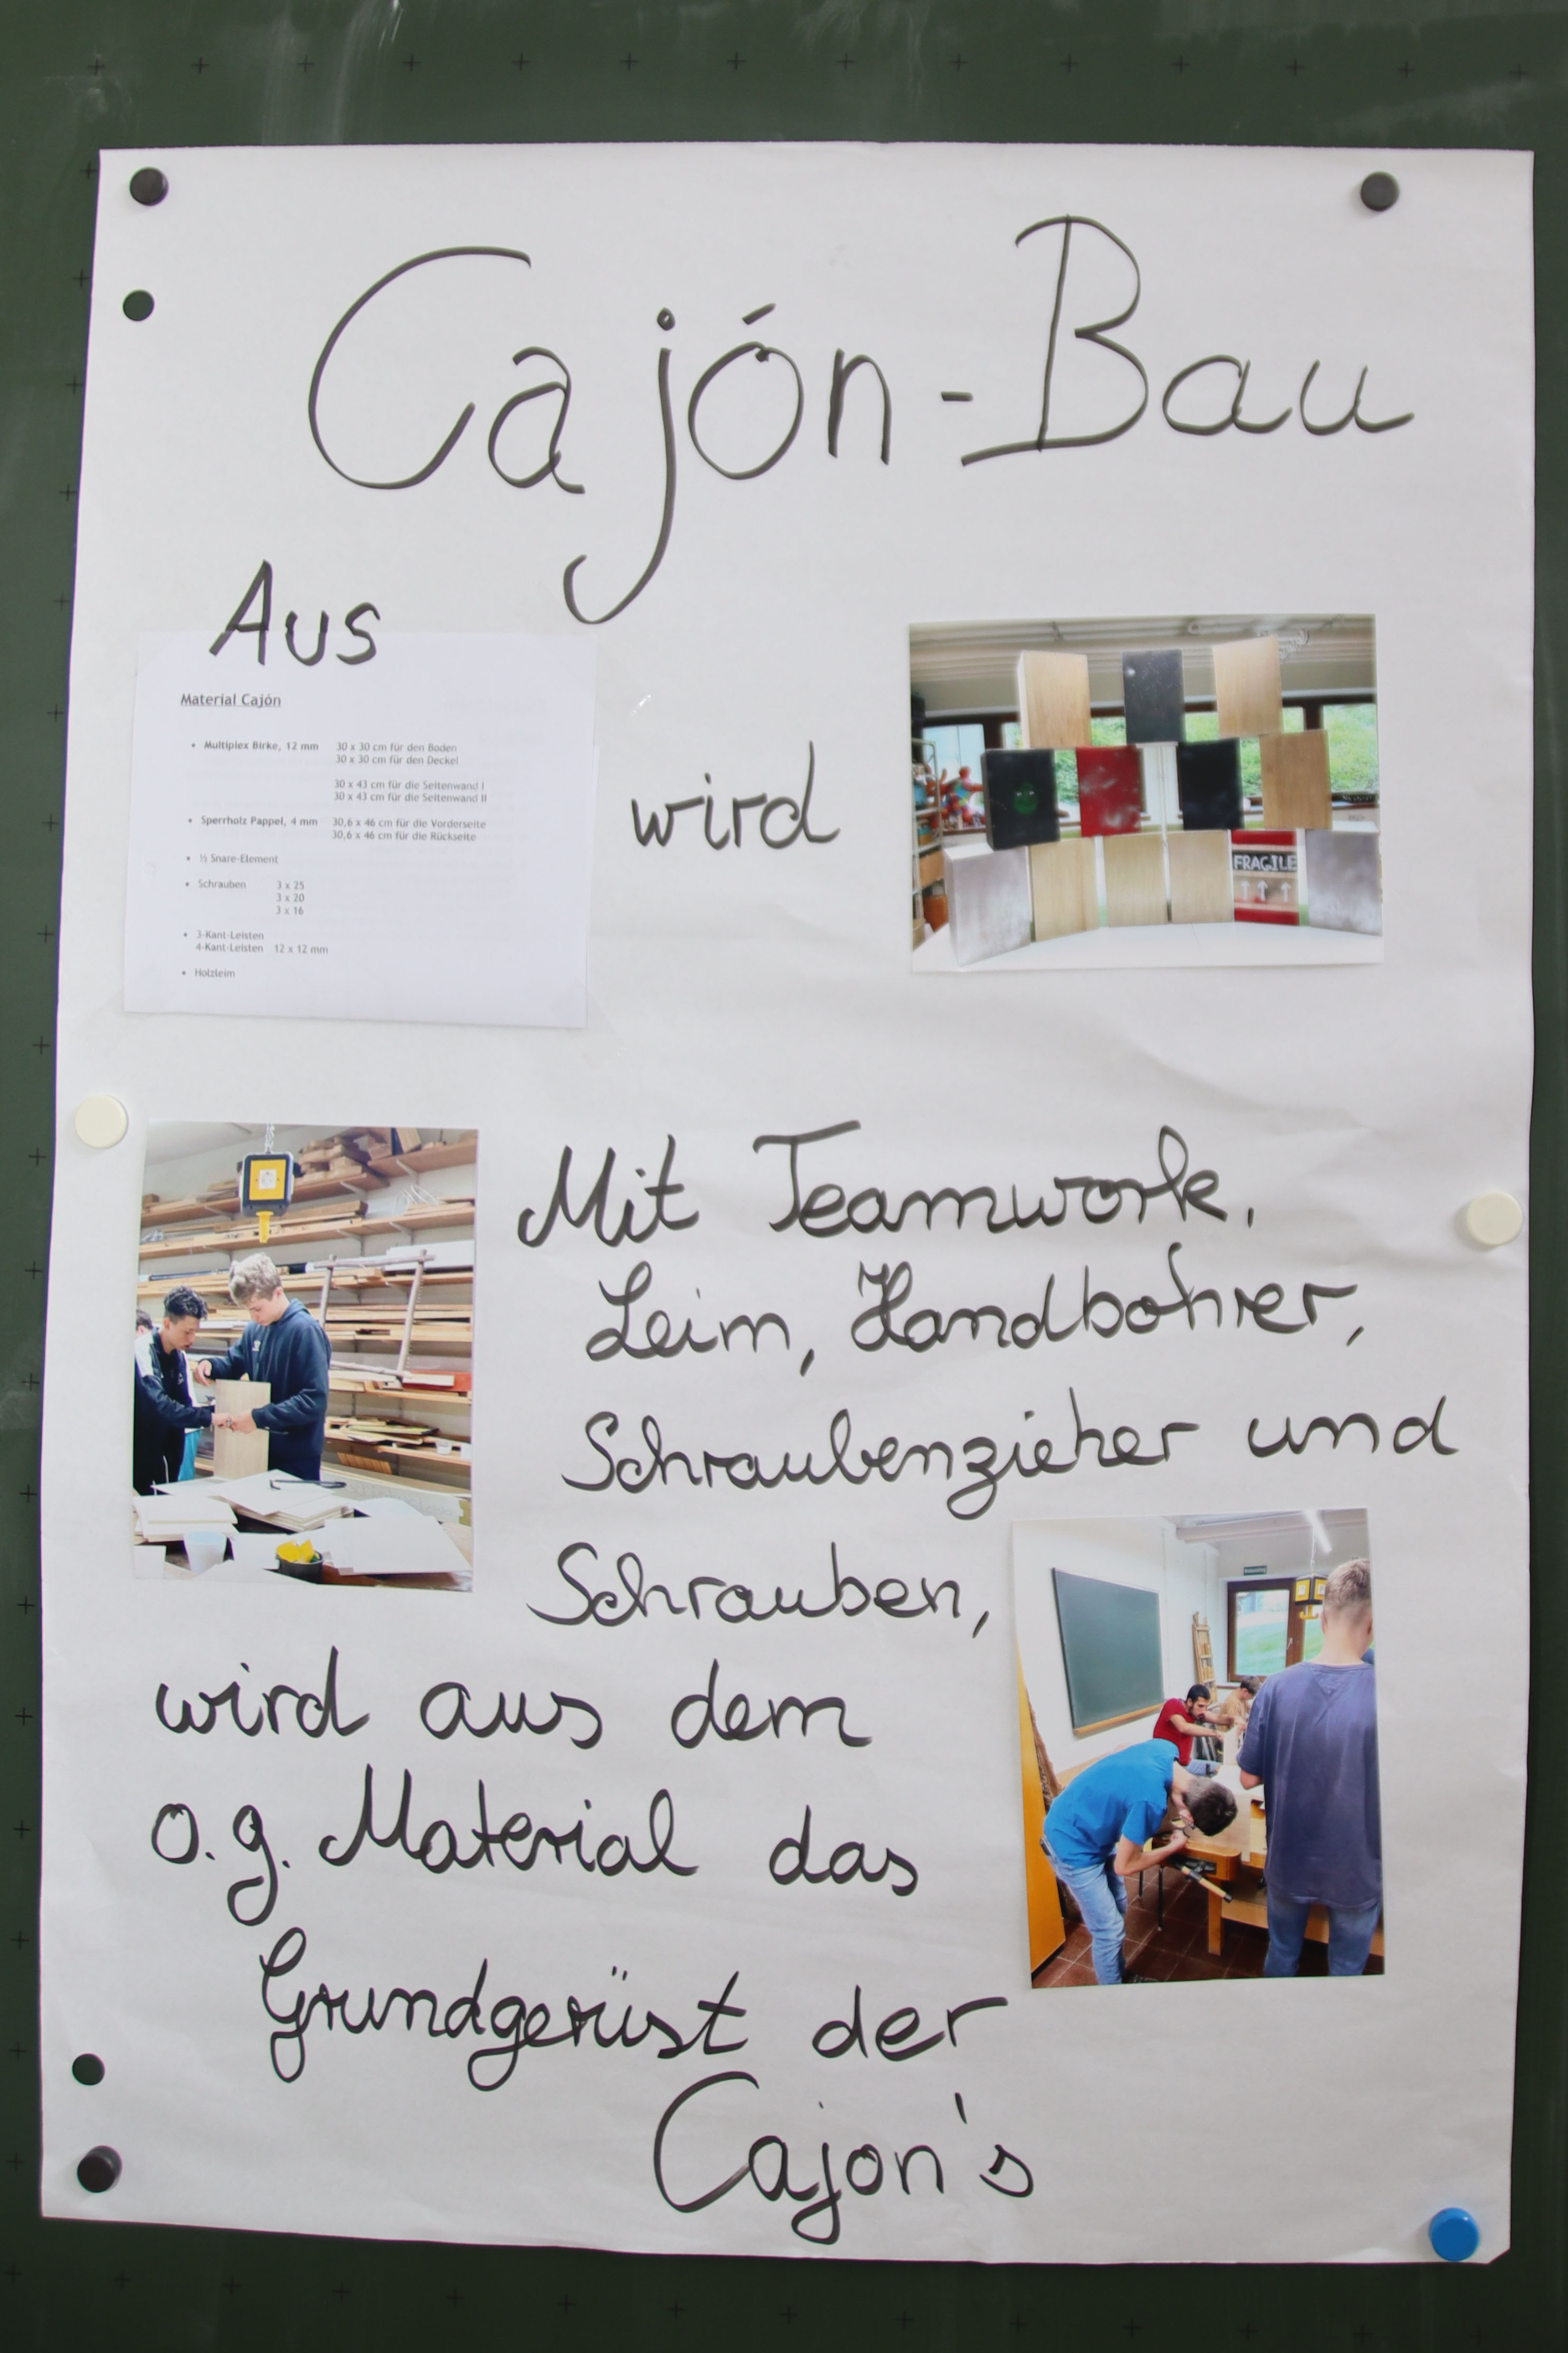 Cajón-Bau
Aus
Material Cajón
• Multiplex Birke, 12 mm 30 x 30 cm für den Boden
30 x 30 cm für den Deckel
30 x 43 cm für die Seitenwand I
30 x 43 cm für die Seitenwand II
• Sperrholz Pappel, 4 mm 30,6 x 46 cm für die Vorderseite
30,6 x 46 cm für die Rückseite
• ½ Snare-Element
• Schrauben 3 x 25
3 x 20
3 x 16
• 3-Kant-Leisten
4-Kant-Leisten 12 x 12 mm
• Holzleim
wird
FRAGILE
Mit Teamwork,
Leim, Handbohrer,
Schraubenzieher und
Schrauben,
wird aus dem
o.g. Material das
Grundgerüst der
Cajon's